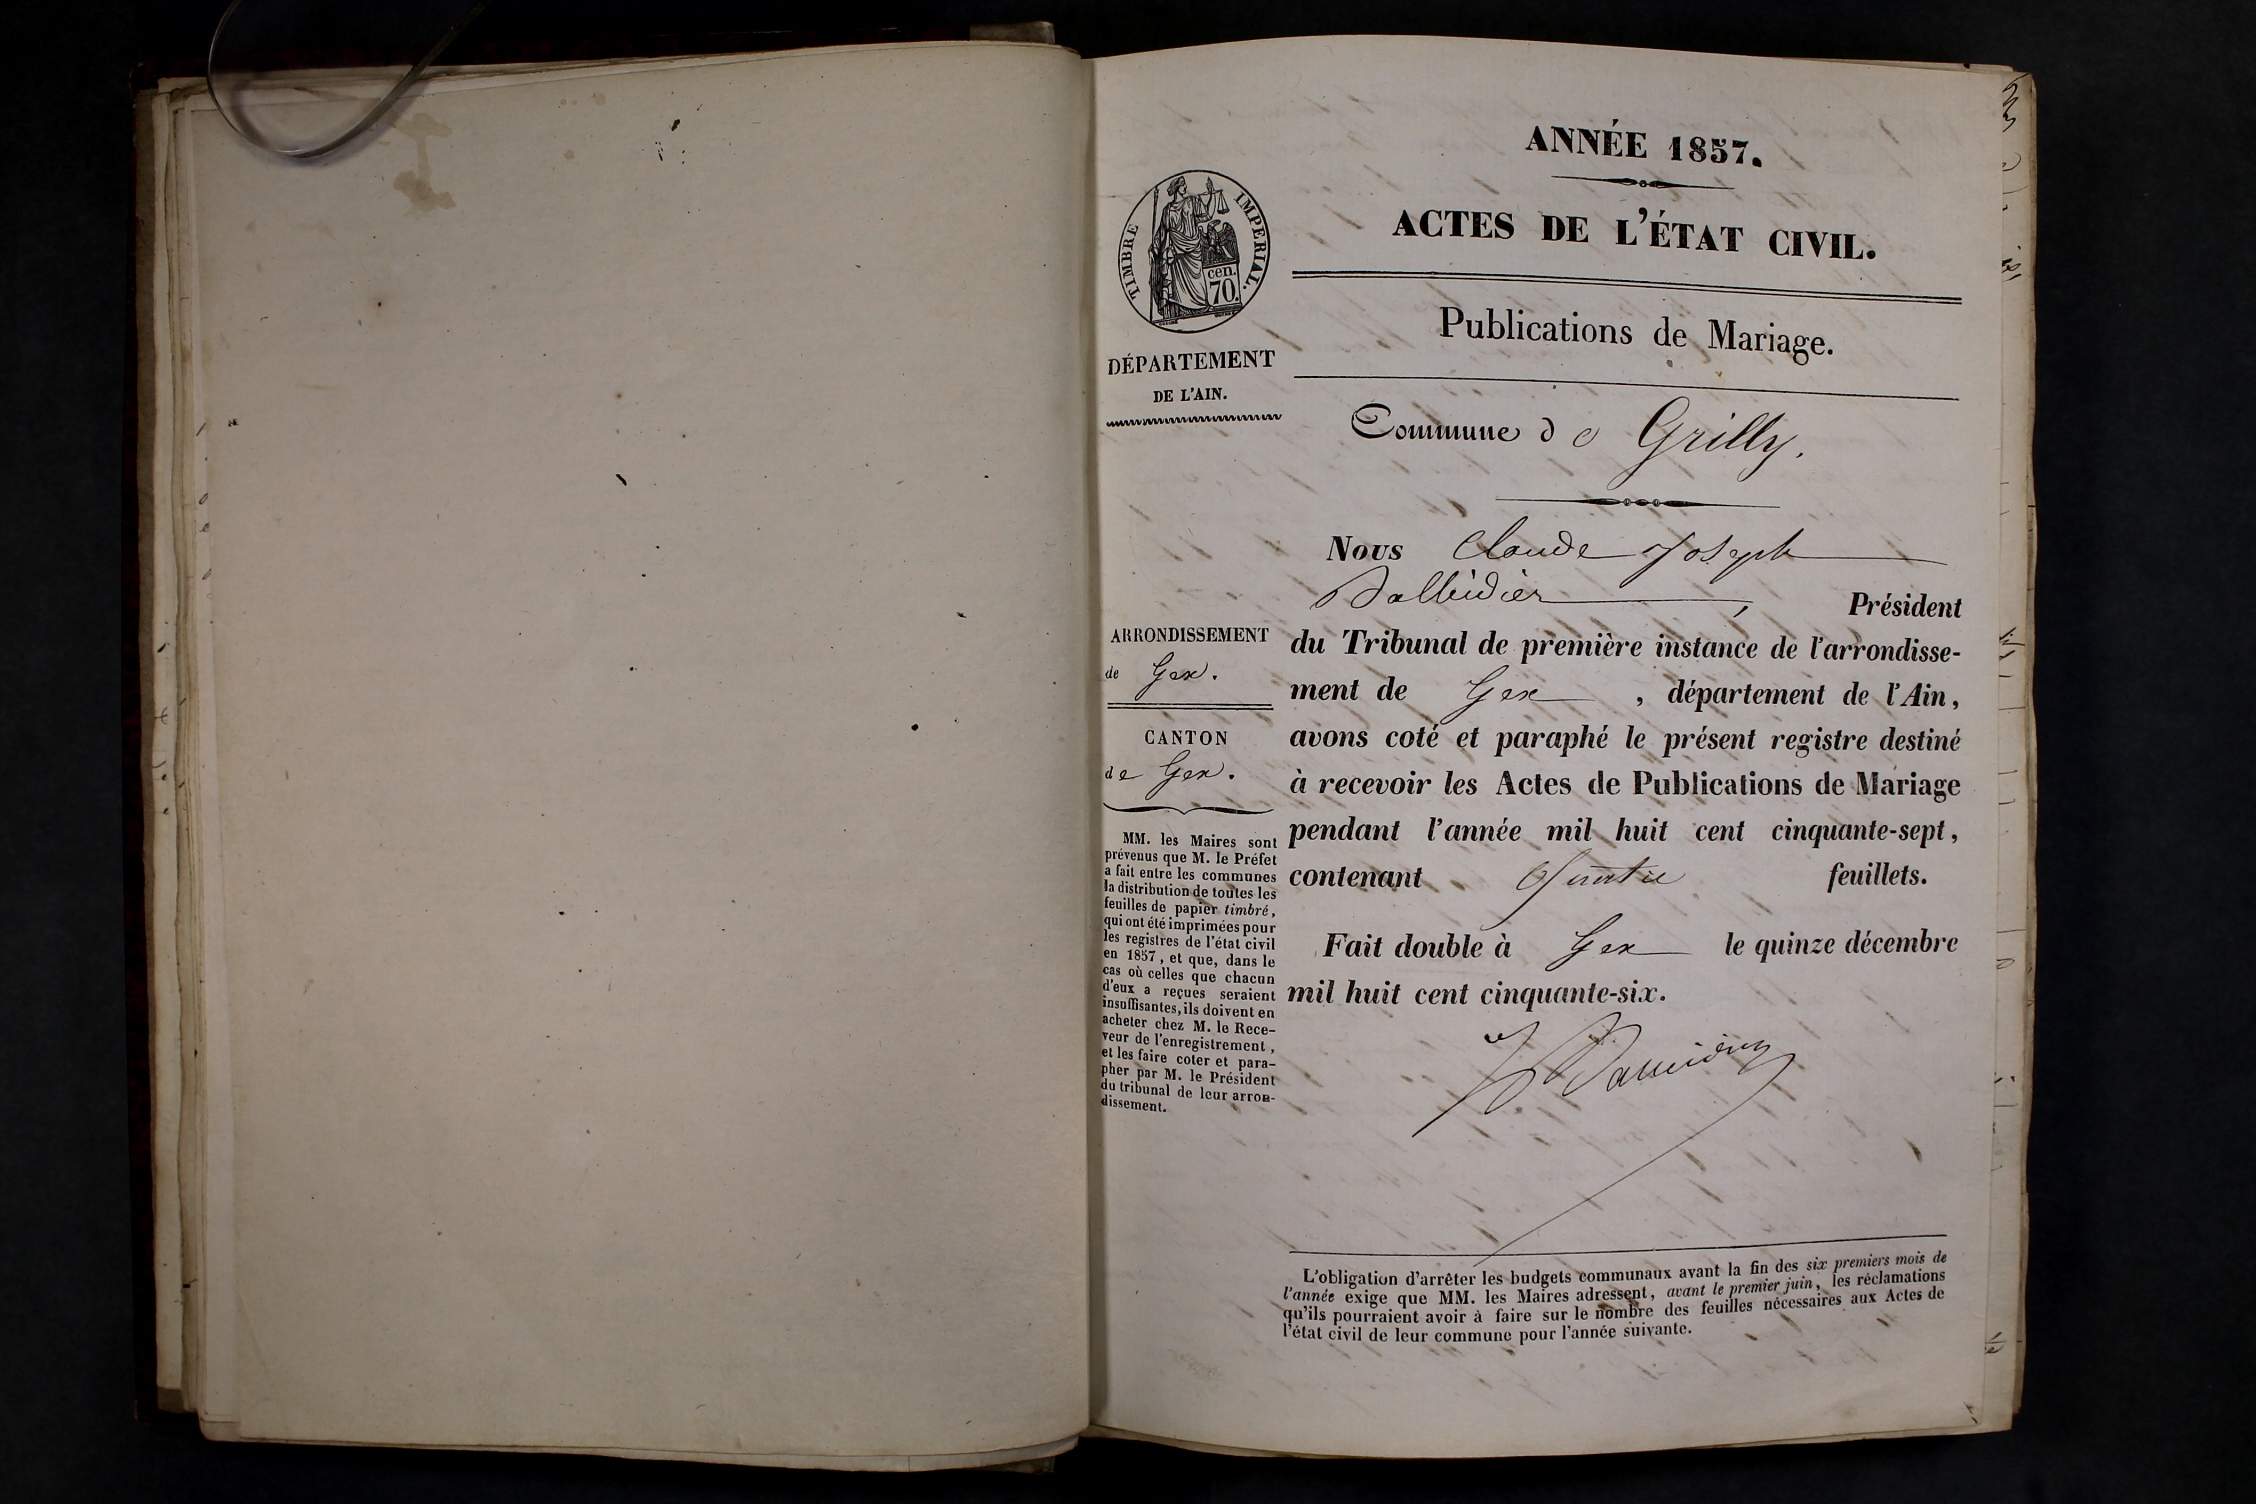 ANNÉE 1857.
ACTES DE L'ÉTAT CIVIL.
Publications de Mariage.
Commune de Grilly.
TIMBRE IMPERIAL.
cen.
70.
DÉPARTEMENT
DE L'AIN.
ARRONDISSEMENT
de Gex.
CANTON
de Gex.
MM. les Maires sont
prévenus que M. le Préfet
a fait entre les communes
la distribution de toutes les
feuilles de papier timbré,
qui ont été imprimées pour
les registres de l'état civil
en 1857, et que, dans le
cas où celles que chacun
d'eux a reçues seraient
insuffisantes, ils doivent en
acheter chez M. le Rece-
veur de l'enregistrement,
et les faire coter et para-
pher par M. le Président
du tribunal de leur arron-
dissement.
Nous Claude Joseph
Président
du Tribunal de première instance de l'arrondisse-
ment de Gex, département de l'Ain,
avons coté et paraphé le présent registre destiné
à recevoir les Actes de Publications de Mariage
pendant l'année mil huit cent cinquante-sept,
contenant feuillets.
Fait double à Gex le quinze décembre
mil huit cent cinquante-six.
L'obligation d'arrêter les budgets communaux avant la fin des six premiers mois de
l'année exige que MM. les Maires adressent, avant le premier juin, les réclamations
qu'ils pourraient avoir à faire sur le nombre des feuilles nécessaires aux Actes de
l'état civil de leur commune pour l'année suivante.